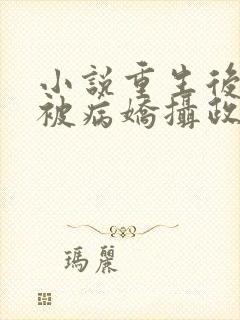 小說重生後
被病嬌攝政
瑪麗